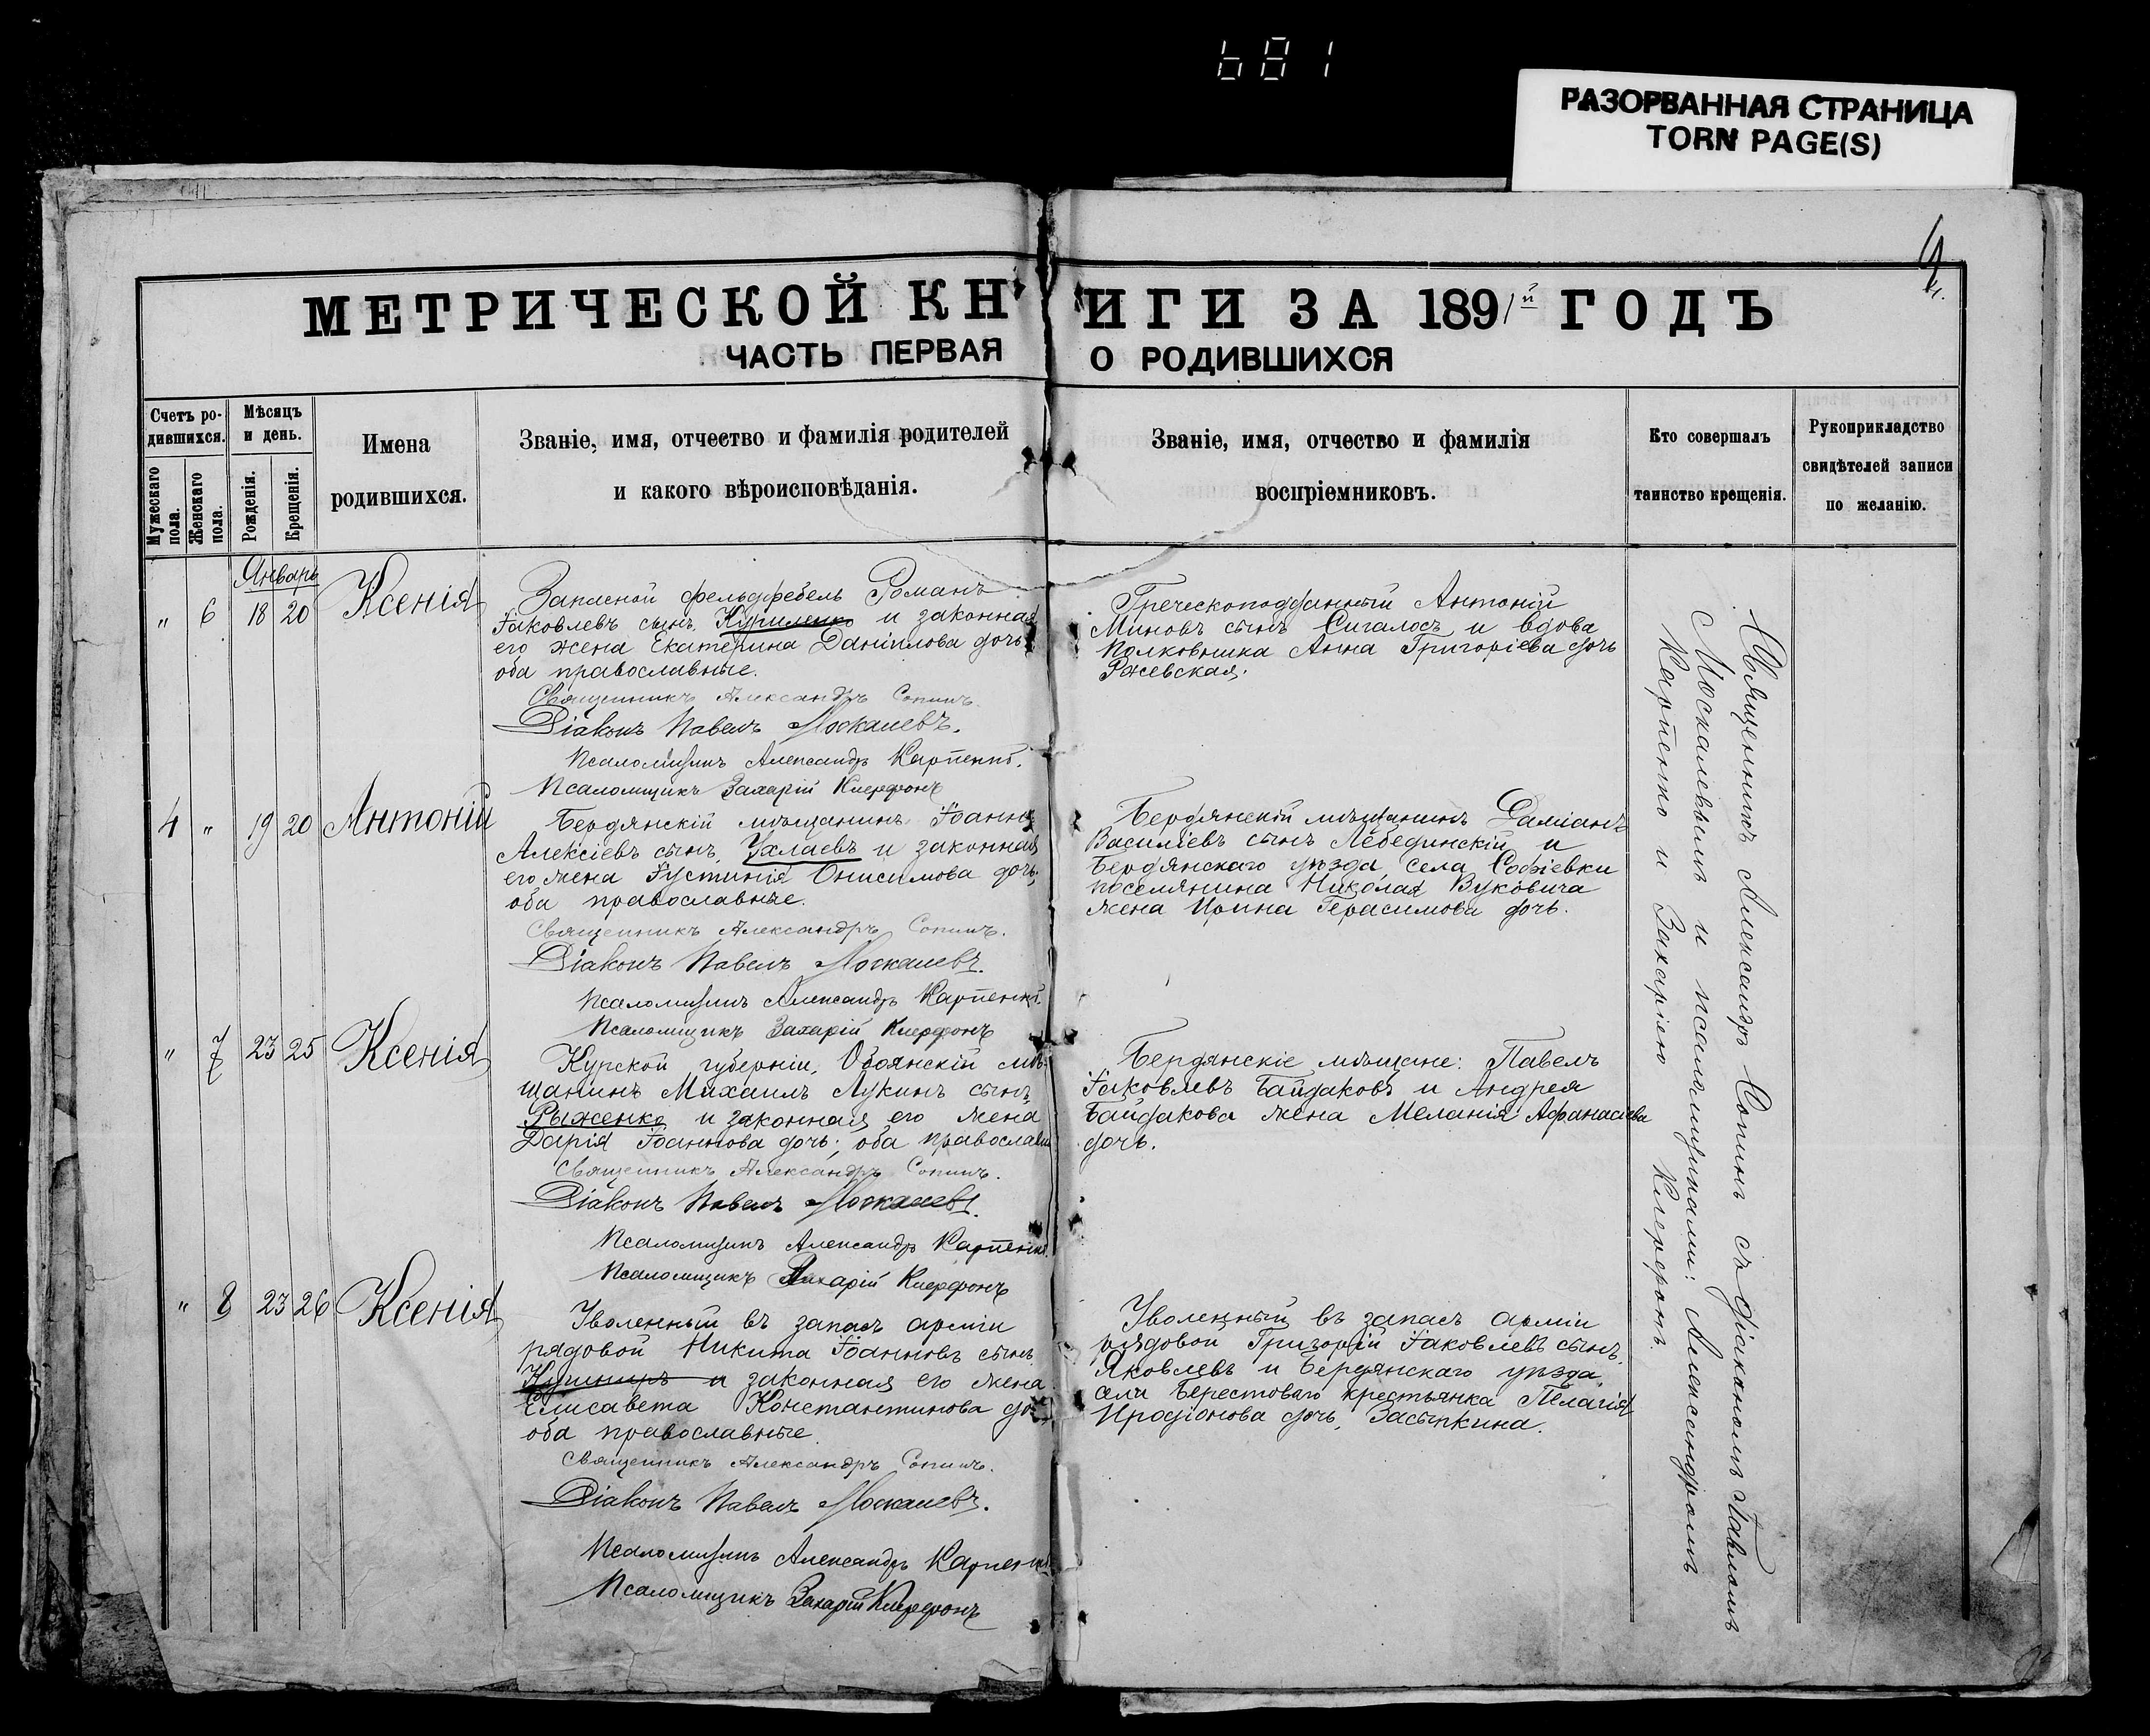 681
РАЗОРВАННАЯ СТРАНИЦА
TORN PAGE(S)
МЕТРИЧЕСКОЙ КНИГИ ЗА 1891й ГОДЪ
ЧАСТЬ ПЕРВАЯ О РОДИВШИХСЯ
Счетъ ро-
дившихся.
Мужескаго пола.
Женскаго пола.
Мѣсяцъ
и день.
Рожденія.
Крещенія.
Имена
родившихся.
Званіе, имя, отчество и фамилія родителей
и какого вѣроисповѣданія.
Званіе, имя, отчество и фамилія
воспріемниковъ.
Кто совершалъ
таинство крещенія.
Рукоприкладство
свидѣтелей записи
по желанію.
Январь
" 6 18 20 Ксенія
Запасной фельдфебель Романъ
Іаковлевъ сынъ, Куриленко и законная
его жена Екатерина Даніилова дочь
оба православные.
Священникъ Александръ Сопинъ.
Діаконъ Павелъ Москалевъ.
Псаломщикъ Александръ Карпенко.
Псаломщикъ Захарій Клерфонъ
Греческоподданный Антоній
Миновъ сынъ Сигалосъ и вдова
полковника Анна Григоріева дочь
Ржевская.
4 " 19 20 Антоній
Бердянскій мѣщанинъ Іоаннъ
Алексіевъ сынъ, Ухлаевъ и законная
его жена Іустинія Онисимова дочь,
оба православные.
Священникъ Александръ Сопинъ.
Діаконъ Павелъ Москалевъ.
Псаломщикъ Александръ Карпенко.
Псаломщикъ Захарій Клерфонъ
Бердянскій мѣщанинъ Даміанъ
Василіевъ сынъ Лебединскій и
Бердянскаго уѣзда села Софіевки
поселянина Николая Вуковича
жена Ирина Герасимова дочь.
" 7 23 25 Ксенія
Курской губерніи, Обоянскій мѣ-
щанинъ Михаилъ Лукинъ сынъ,
Рыженко и законная его жена
Дарія Іоаннова дочь; оба православн
Священникъ Александръ Сопинъ.
Діаконъ Павелъ Москалевъ.
Псаломщикъ Александръ Карпенко.
Псаломщикъ Захарій Клерфонъ
Бердянскіе мѣщане: Павелъ
Іаковлевъ Байдаковъ и Андрея
Байдакова жена Меланія Афанасіева
дочь.
" 8 23 26 Ксенія
Уволенный въ запасъ арміи
рядовой Никита Іоанновъ сынъ,
Кушниръ и законная его жена
Елисавета Константинова доч
оба православные.
Священникъ Александръ Сопинъ.
Діаконъ Павелъ Москалевъ.
Псаломщикъ Александръ Карпенко
Псаломщикъ Захарій Клерфонъ
Уволенный въ запасъ арміи
рядовой Григорій Іаковлевъ сынъ,
Яковлевъ и Бердянскаго уѣзда,
села Берестоваго крестьянка Пелагія
Иродіонова дочь, Засыпкина.
Священникъ Александръ Сопинъ съ діакономъ Павломъ
Москалевымъ и псаломщиками: Александромъ
Карпенко и Захаріею Клерфонъ.